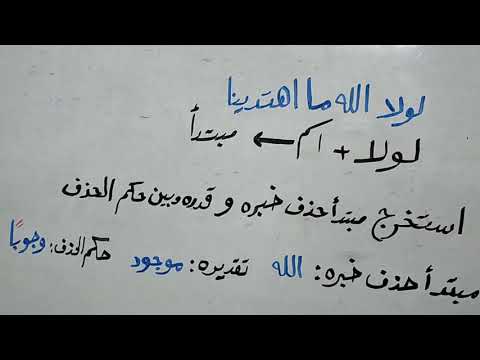 لولا الله ما اهتدينا
لولا + اسم ← مبتدأ
استخرج مبتدأ حذف خبره و قدره وبين حكم الحذف
مبتدأ حذف خبره: الله تقديره: موجود حكم الحذف: وجوبًا